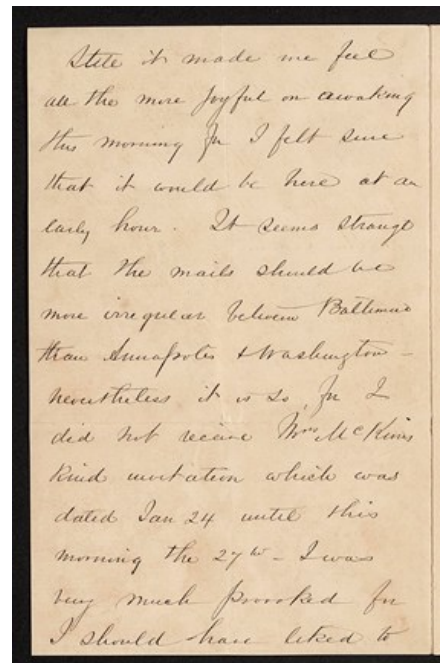 Still it made me feel
all the more joyful on awaking
this morning for I felt sure
that it would be here at an
early hour. It seems strange
that the mails should be
more irregular between Baltimore
than Annapolis & Washington -
nevertheless it is so, for I
did not receive Mrs McKims
kind invitation which was
dated Jan 24 until this
morning the 27th - I was
very much provoked for
I should have liked to